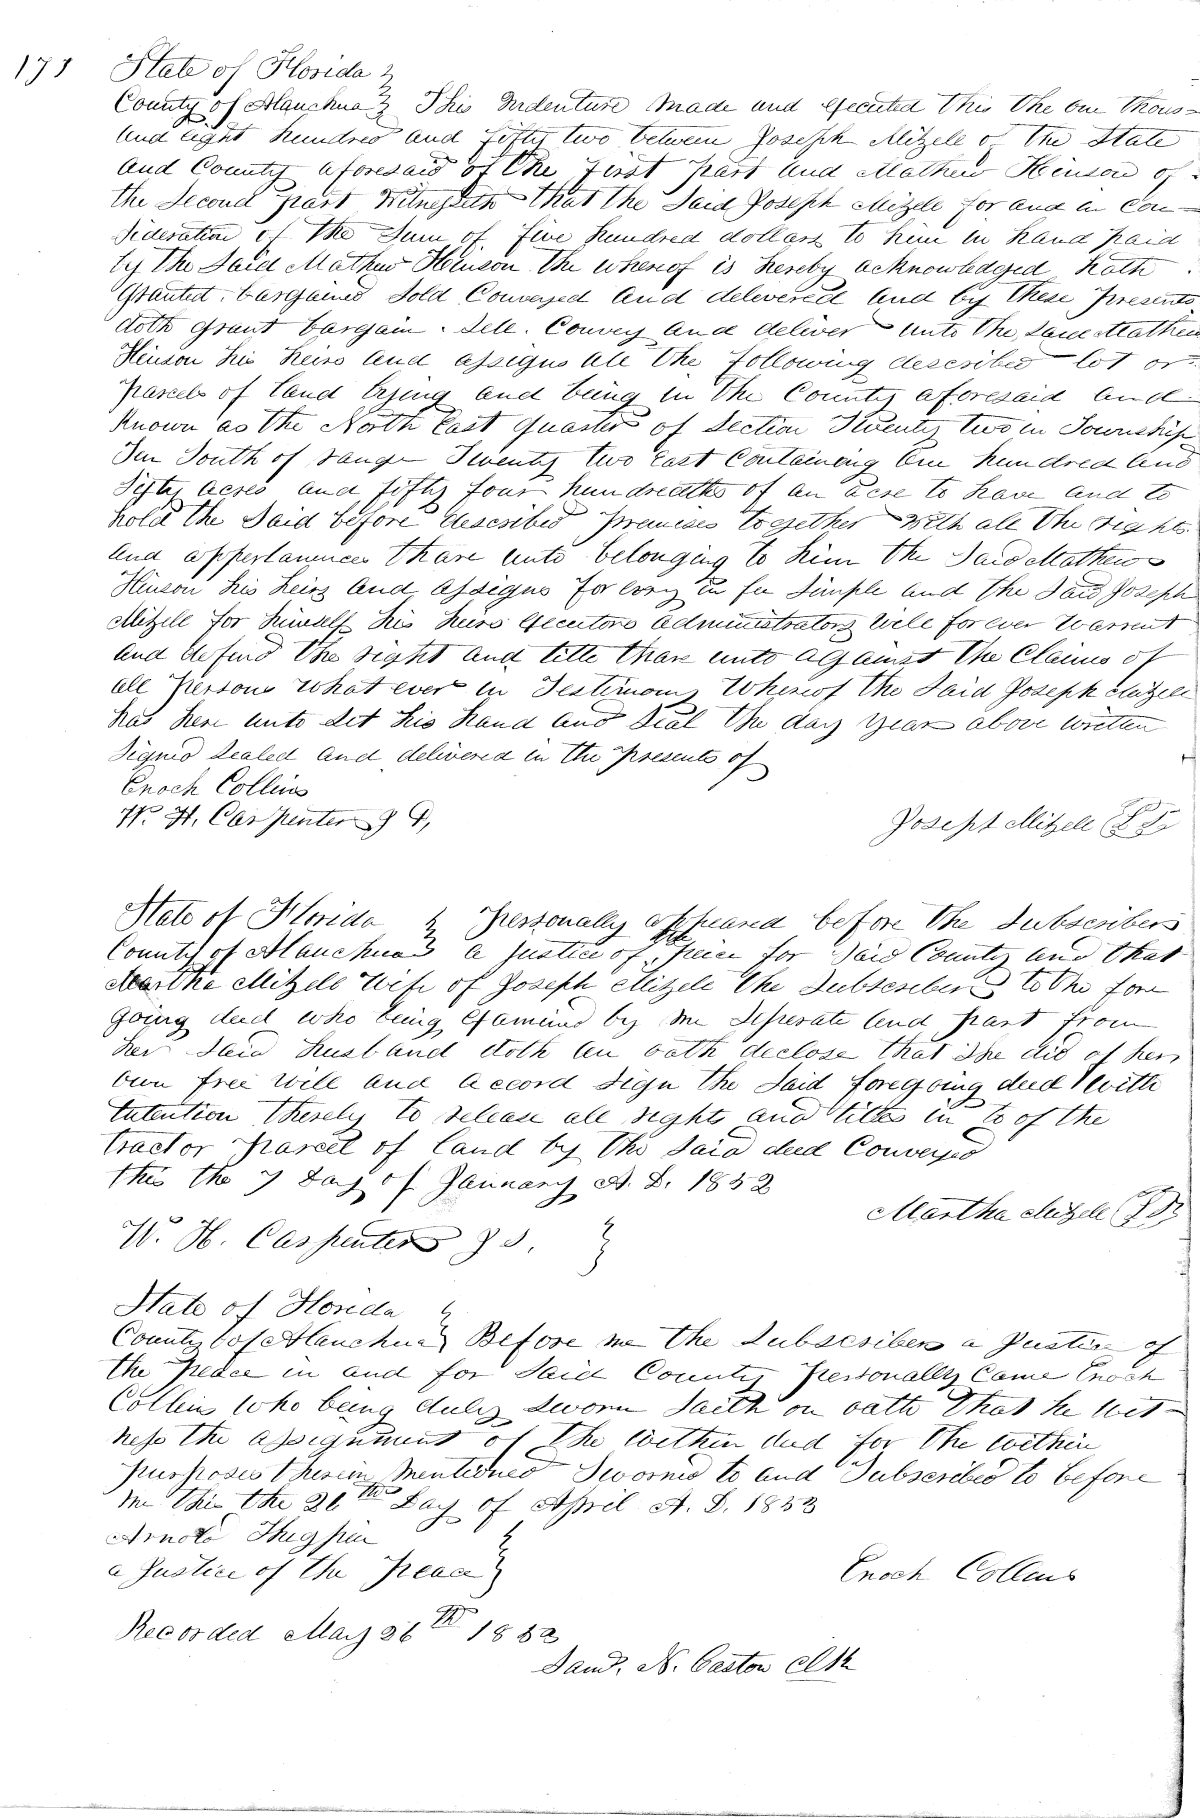 173 State of Florida }
County of Alauchua } This Indenture Made and executed this the one thous=
and eight hundred and fifty two between Joseph Mizell of the State
and County aforesaid of the first part and Mathew Hinson of
the Second part Witnesseth that the Said Joseph Mizell for and in Con=
sideration of the Sum of five hundred dollars to him in hand paid
by the Said Mathew Hinson the whereof is hereby acknowledged hath
Granted, bargained Sold Conveyed and delivered and by these presents
doth grant bargain. Sell. Convey and deliver unto the Said Mathew
Hinson his heirs and assigns all the following described lot or
parcels of land lying and being in the County aforesaid and
Known as the North East quarter of Section Twenty two in Township
Ten South of range Twenty two East Containing One hundred and
Sixty acres and fifty four hundredths of an acre to have and to
hold the Said before described premises together With all the rights
and appertanences thare unto belonging to him the Said Mathew
Hinson his heirs and assigns for evry in fee Simple and the Said Joseph
Mizell for himself his heirs executors administrators will for ever Warrent
and defend the right and title thare unto against the Claims of
all persons what ever in Testimony Whereof the Said Joseph Mizell
has here unto Set his hand and Seal the day year above written
Signed Sealed and delivered in the presents of
Enoch Collins
W. H. Carpenter J P,
Joseph Mizell (L S)
State of Florida } Personally appeared before the Subscriber
County of Alauchua } a Justice of the peice for Said County and that
Martha Mizell Wife of Joseph Mizell the Subscriber to the fore
going deed who being examined by me Seperate and part from
her Said husband doth an oath declose that She did of her
own free will and accord Sign the Said foregoing deed With
intention thereby to release all rights and titles in to of the
tract or parcel of land by the Said deed Conveyed
this the 7 Day of January A. D. 1852
Martha Mizell (L S)
W. H. Carpenter J P. }
State of Florida }
County of Alauchua } Before me the Subscriber a Justice of
the Peace in and for Said County personally Came Enoch
Collins Who being duly Sworn Saith on oath that he wit=
ness the assignment of the within deed for the within
purposes therein Mentioned Sworned to and Subscribed to before
me this the 26th Day of April A. D. 1853
Arnold Thigpin }
a Justice of the Peace }
Enoch Collins
Recorded May 26th 1852
Saml. N. Caston Clk